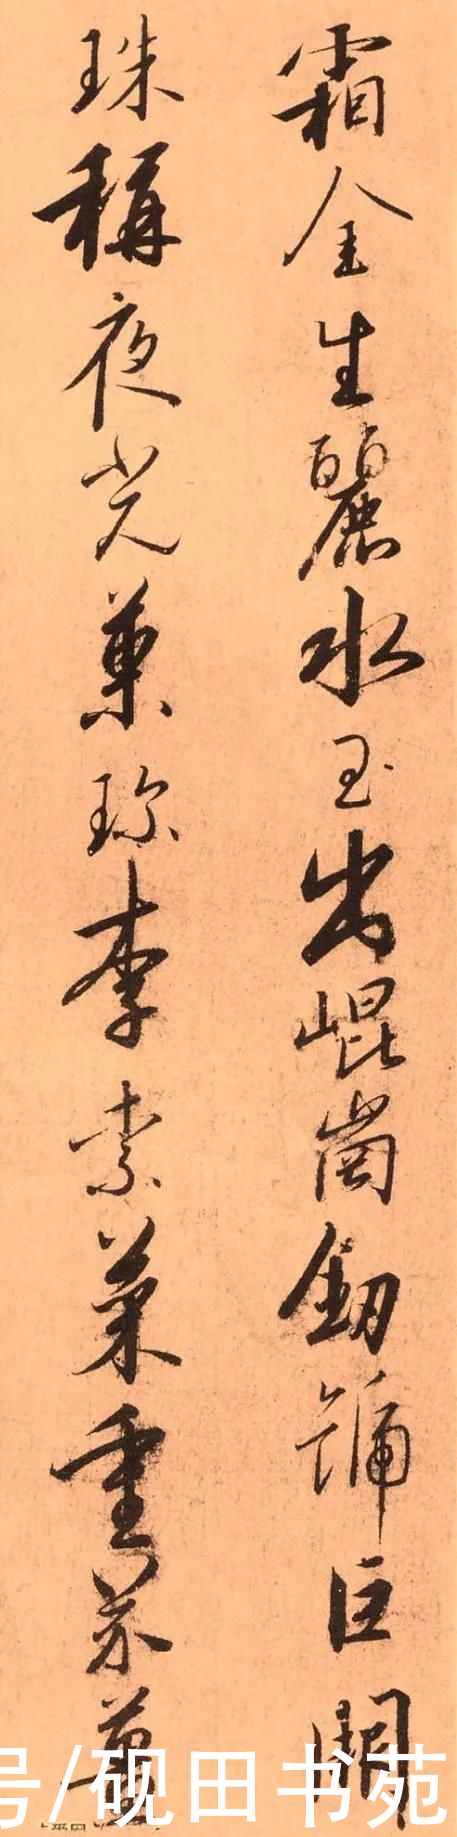 霜金生麗水玉出崐崗釰號巨闕
珠稱夜光菓珍李柰菜重芥薑
号/砚田书苑